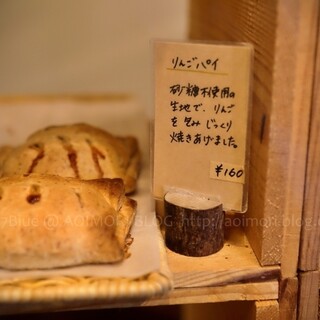 りんごパイ
砂糖不使用の
生地で、りんご
を包みじっくり
焼きあげました。
¥160
Blue @ AOIMORI BLOG http://aoimori.blog